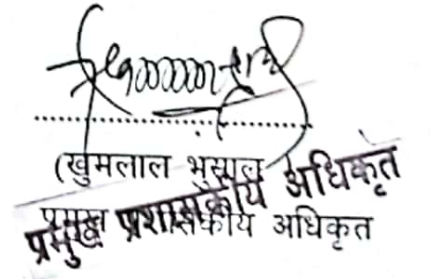 (खुमलाल भुसाल)
प्रमुख प्रशासकीय अधिकृत
प्रमुख प्रशासकीय अधिकृत